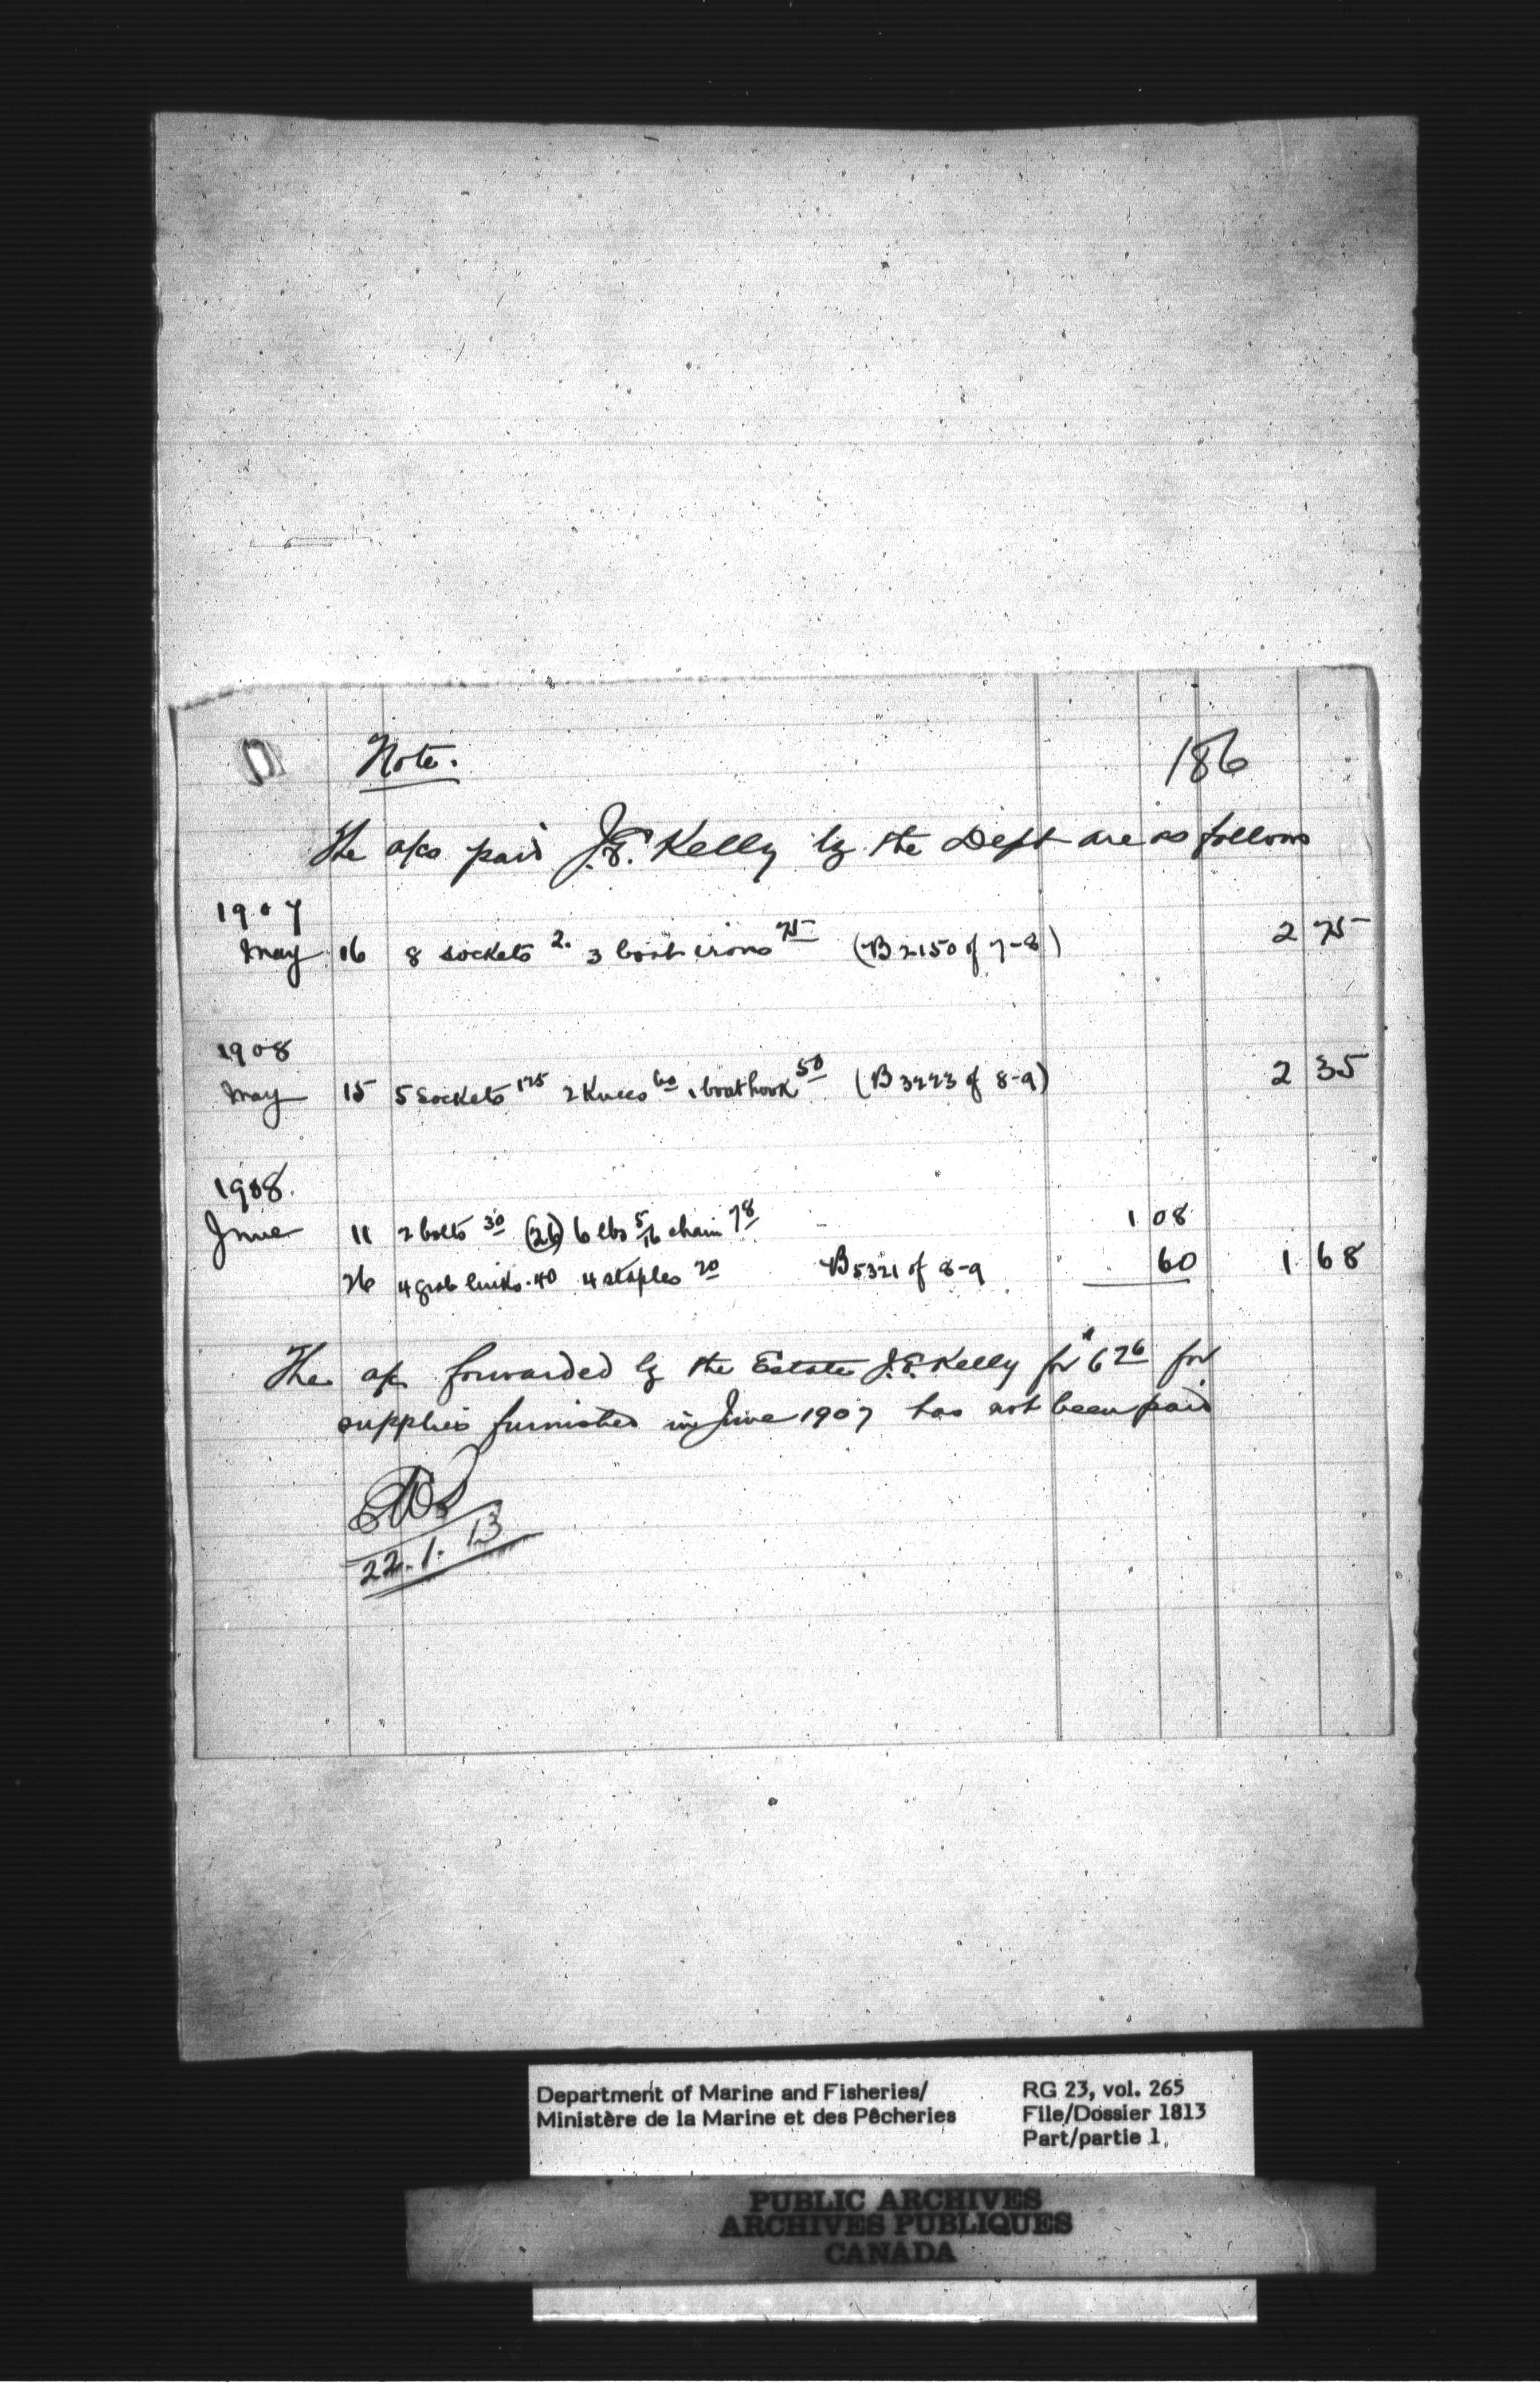 Note.
186
The a/cs paid J.E. Kelly by the Dept are as follows
1907
May 16 8 sockets 2. 3 boat irons 75 (B 2150 of 7-8) 2 75
1908
May 15 5 Sockets 125 2 Knees 60 1 boat hook 50 (B 3223 of 8-9) 2 35
1908.
June 11 2 bolts 30 (26) 6 lbs 5/16 chain 78 1 08
26 4 grab links .40 4 staples 20 B 5321 of 8-9 60 1 68
The a/c forwarded by the Estate J.E. Kelly for $6 26 for
supplies furnished in June 1907 has not been paid
22.1.13
Department of Marine and Fisheries/
Ministère de la Marine et des Pêcheries
RG 23, vol. 265
File/Dossier 1813
Part/partie 1
PUBLIC ARCHIVES
ARCHIVES PUBLIQUES
CANADA